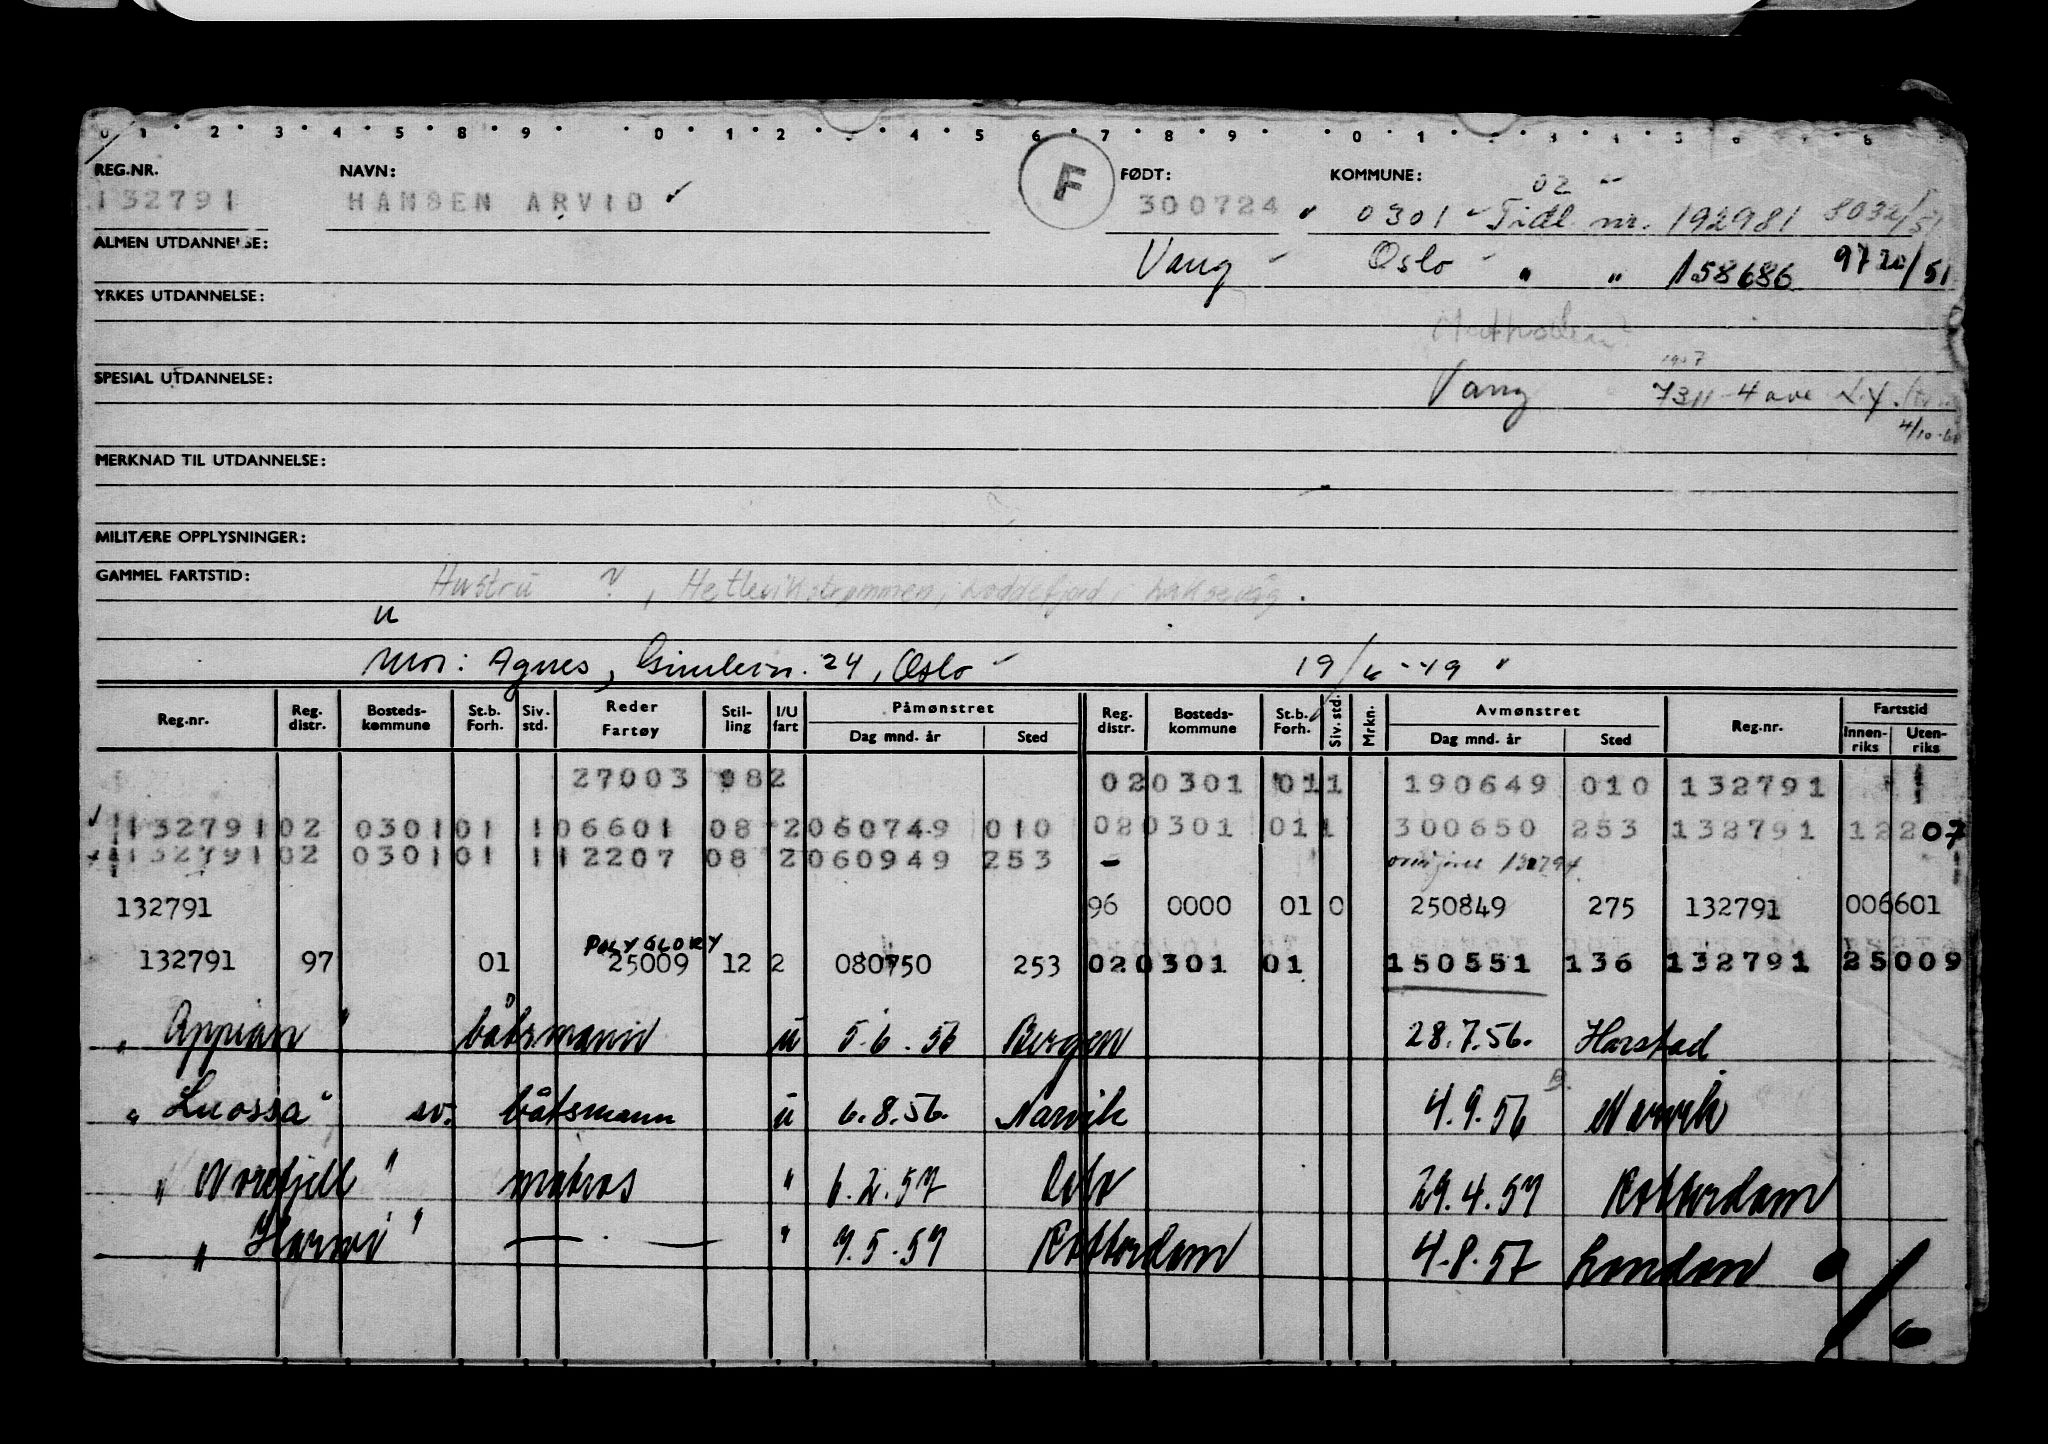 0 1 2 3 4 5 8 9 0 1 2 4 5 6 7 8 9 0 1
REG.NR. NAVN: F FØDT: KOMMUNE: 02
132791 HANSEN ARVID 300724 0301 Tidl. nr. 192981 8032/51
ALMEN UTDANNELSE: Vang Oslo " " 158686 9720/51
YRKES UTDANNELSE:
SPESIAL UTDANNELSE: Vang 7311-4 ave
4/10-6
MERKNAD TIL UTDANNELSE:
MILITÆRE OPPLYSNINGER:
GAMMEL FARTSTID: Hustru ?, Hetlevikstrømmen, Loddefjord, Laksevåg.
u
Mor: Agnes, 24, Oslo 19/6-49
Reg.nr. Reg. distr. Bosteds-kommune St.b. Forh. Siv. std. Reder Fartøy Stil-ling I/U fart Påmønstret Dag mnd. år Sted Reg. distr. Bosteds-kommune St.b. Forh. Siv. std. Mrkn. Avmønstret Dag mnd. år Sted Reg.nr. Fartstid Innen-riks Uten-riks
27003 082 020301 011 190649 010 132791
132791 02 0301 01 1 06601 08 2 060749 010 020301 011 300650 253 132791 12207
132791 02 0301 01 1 12207 08 2 060949 253 –
132791 96 0000 01 0 250849 275 132791 006601
POLYGLORY
132791 97 01 25009 12 2 080750 253 020301 01 150551 136 132791 25009
"Appian" båtsmann u 5.6.56 Bergen 28.7.56. Harstad
"Luossa" sv. båtsmann u 6.8.56. Narvik 4.9.56 Narvik
"Norefjell" matros " 6.2.57 Oslo 29.4.57 Rotterdam
" " — . — " 9.5.57 Rotterdam 4.8.57 London